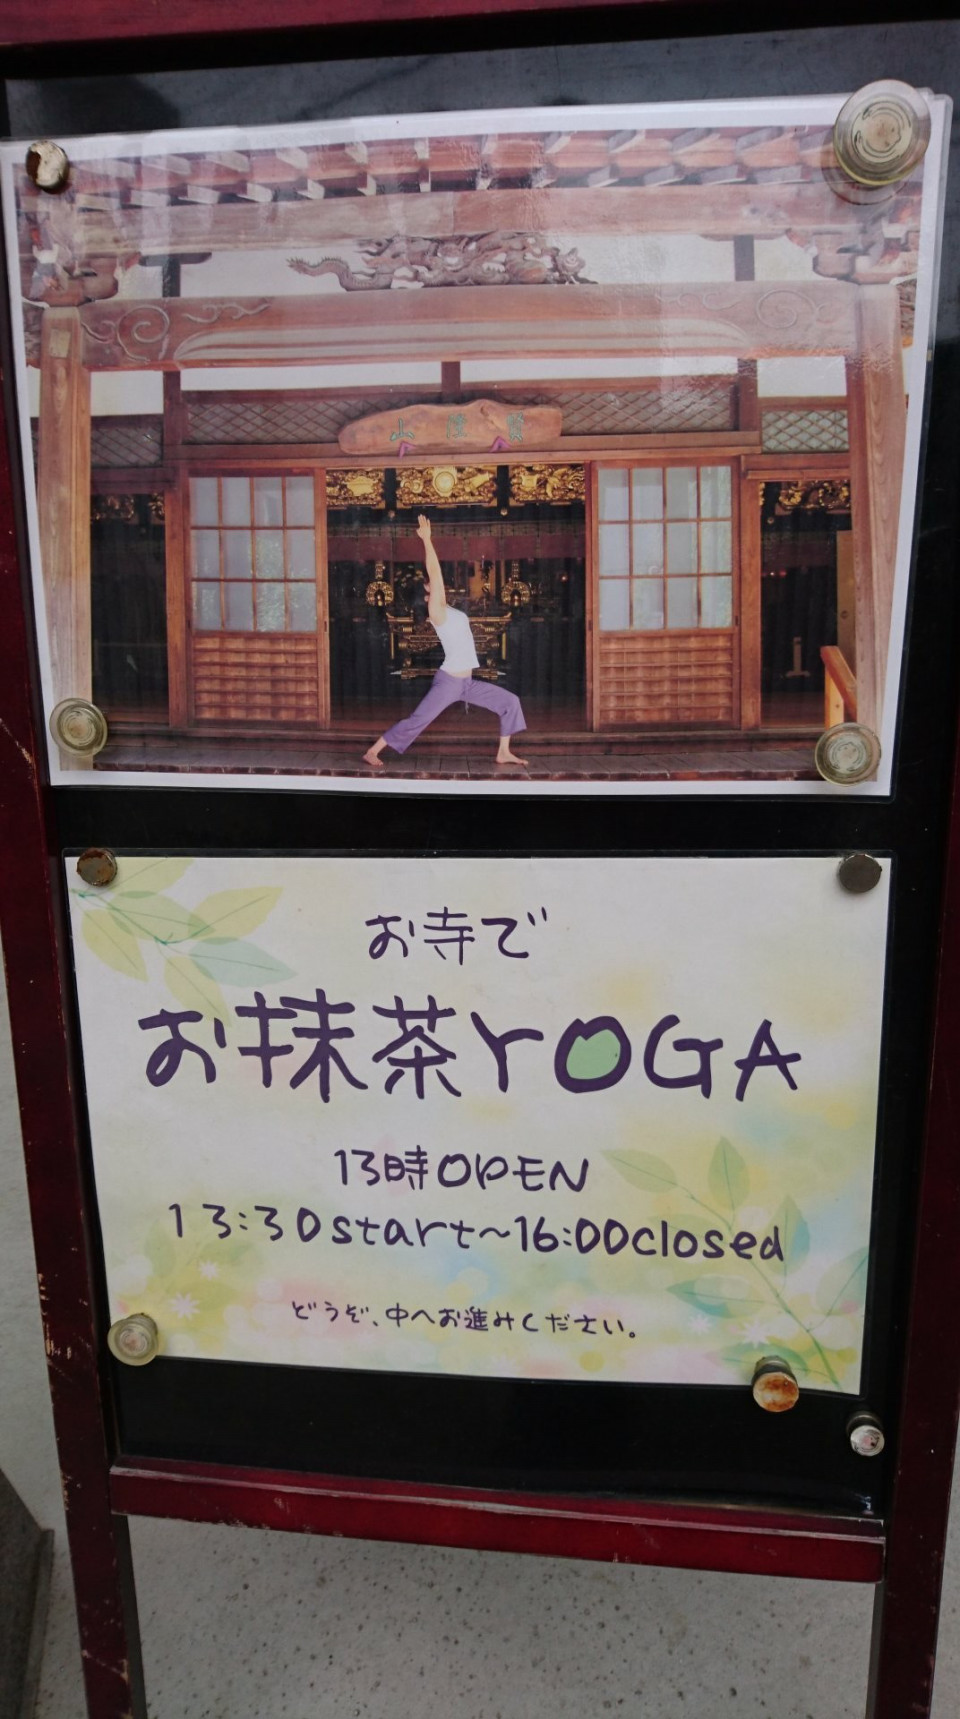 お寺で
お抹茶YOGA
13時OPEN
13:30start~16:00closed
どうぞ、中へお進みください。